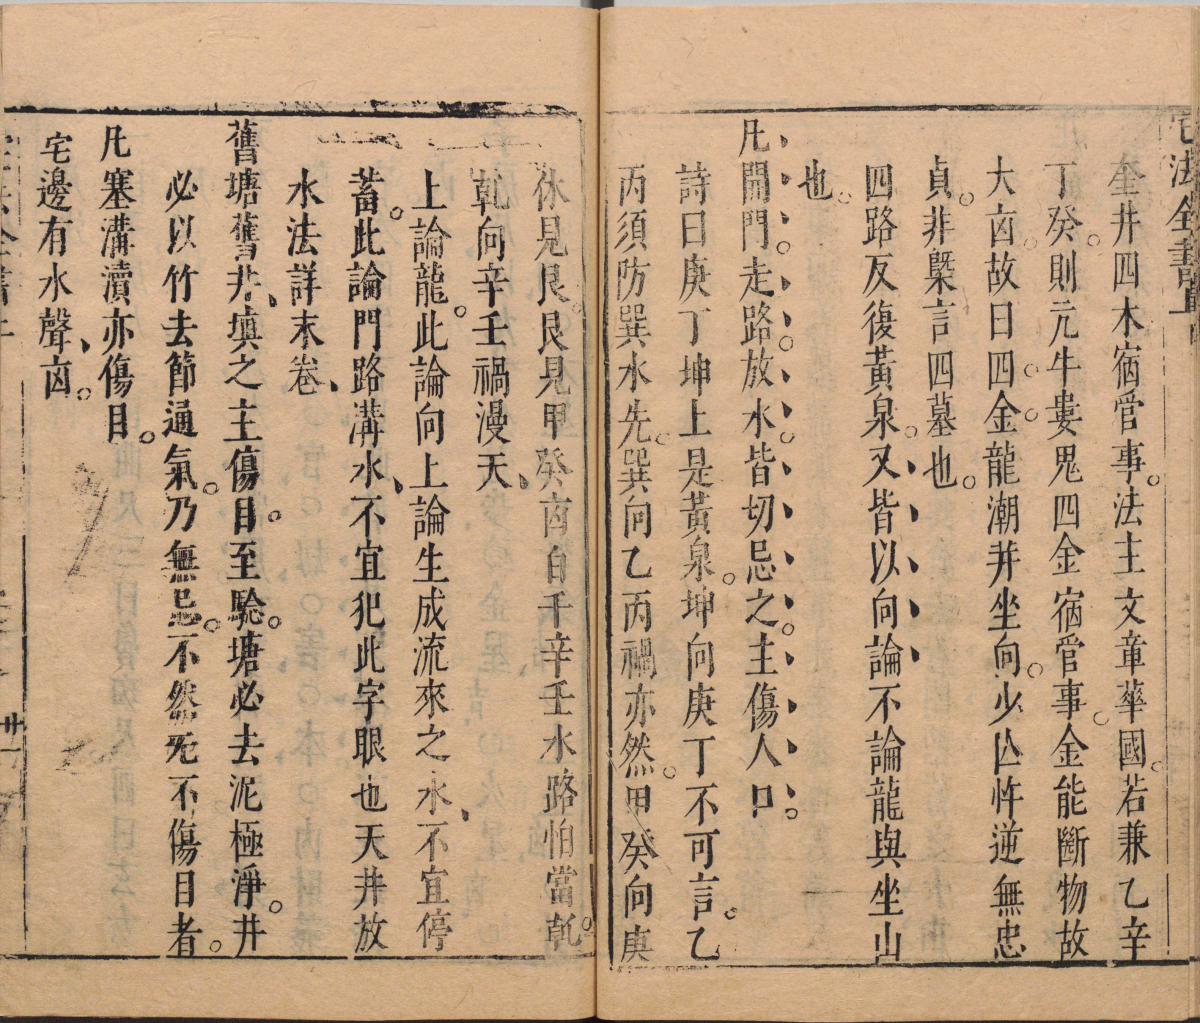 宅法全書
奎井四木宿管事法主文章華國若兼乙辛
丁癸則亢牛婁鬼四金宿管事金能斷物故
大凶故曰四金龍潮井坐向少亾忤逆無忠
貞非槩言四墓也
四路反復黃泉又皆以向論不論龍與坐山
也
凡開門走路放水皆切忌之主傷人口
詩曰庚丁坤上是黃泉坤向庚丁不可言乙
丙須防巽水先巽向乙丙禍亦然甲癸向庚
休見艮艮見甲癸凶百千辛壬水路怕當乾
乾向辛壬禍漫天
上論龍此論向上論生成流來之水不宜停
蓄此論門路溝水不宜犯此字眼也天井放
水法詳末卷
舊塘舊井塡之主傷目至驗塘必去泥極淨井
必以竹去節通氣乃無忌不然死不傷目者
凡塞溝瀆亦傷目
宅邊有水聲凶
廿一